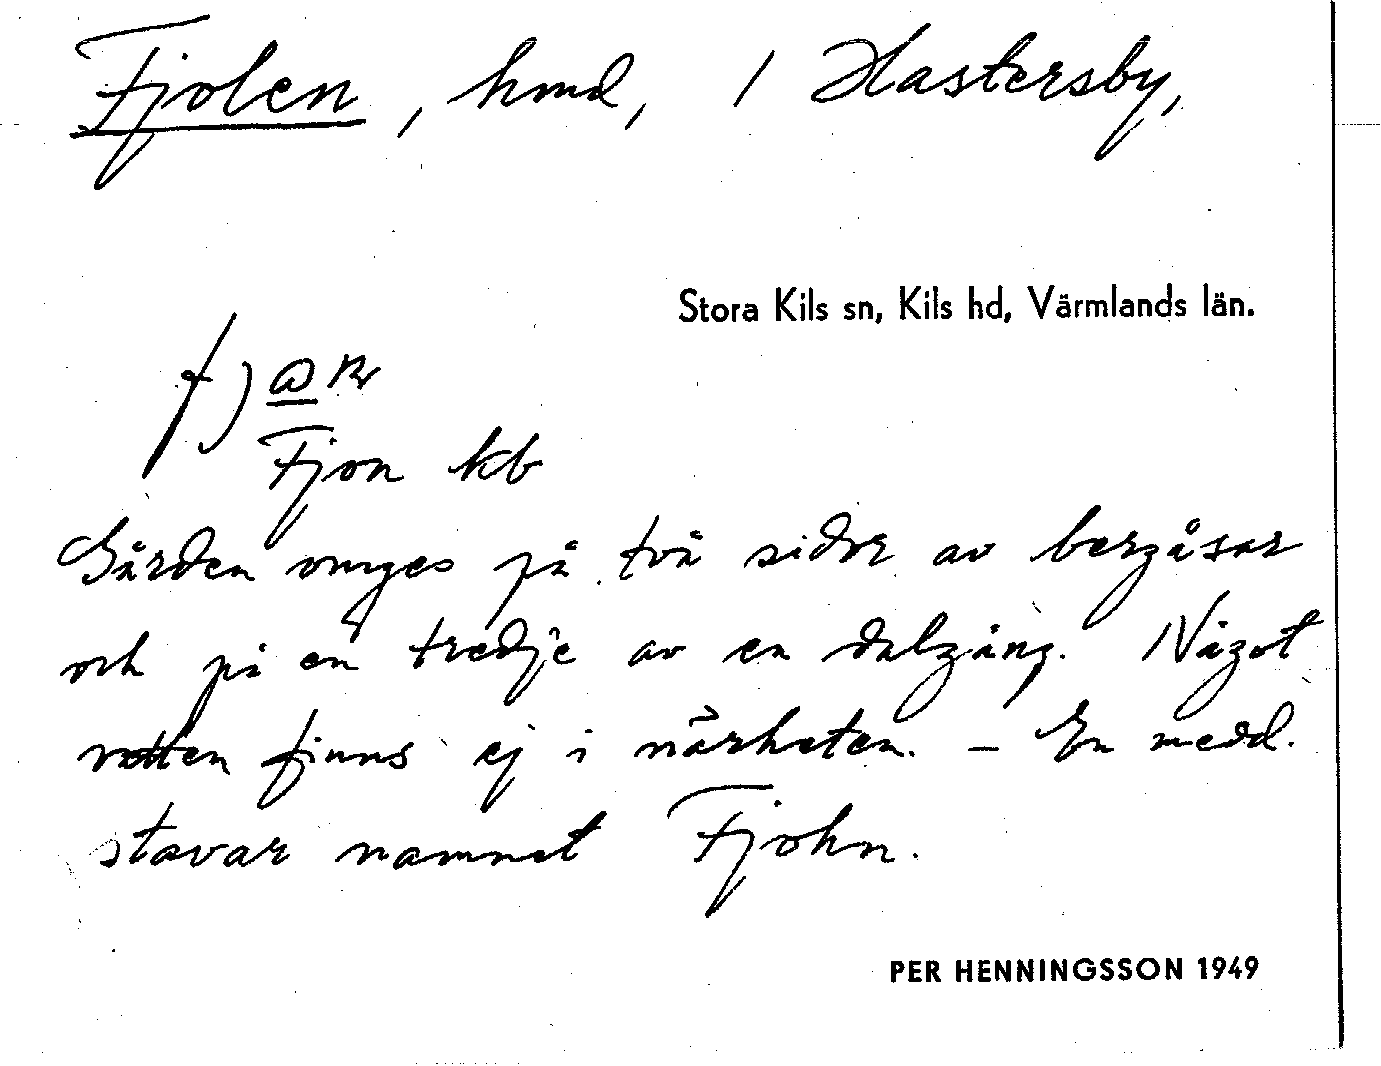 Fjolen, hmd, 1 Hastersby,
Stora Kils sn, Kils hd, Värmlands län.
Fjon kb
Gården omges på två sidor av bergåsar
och på en tredje av en dalgång. Något
vatten finns ej i närheten. – En medd.
stavar namnet Fjohn.
PER HENNINGSSON 1949